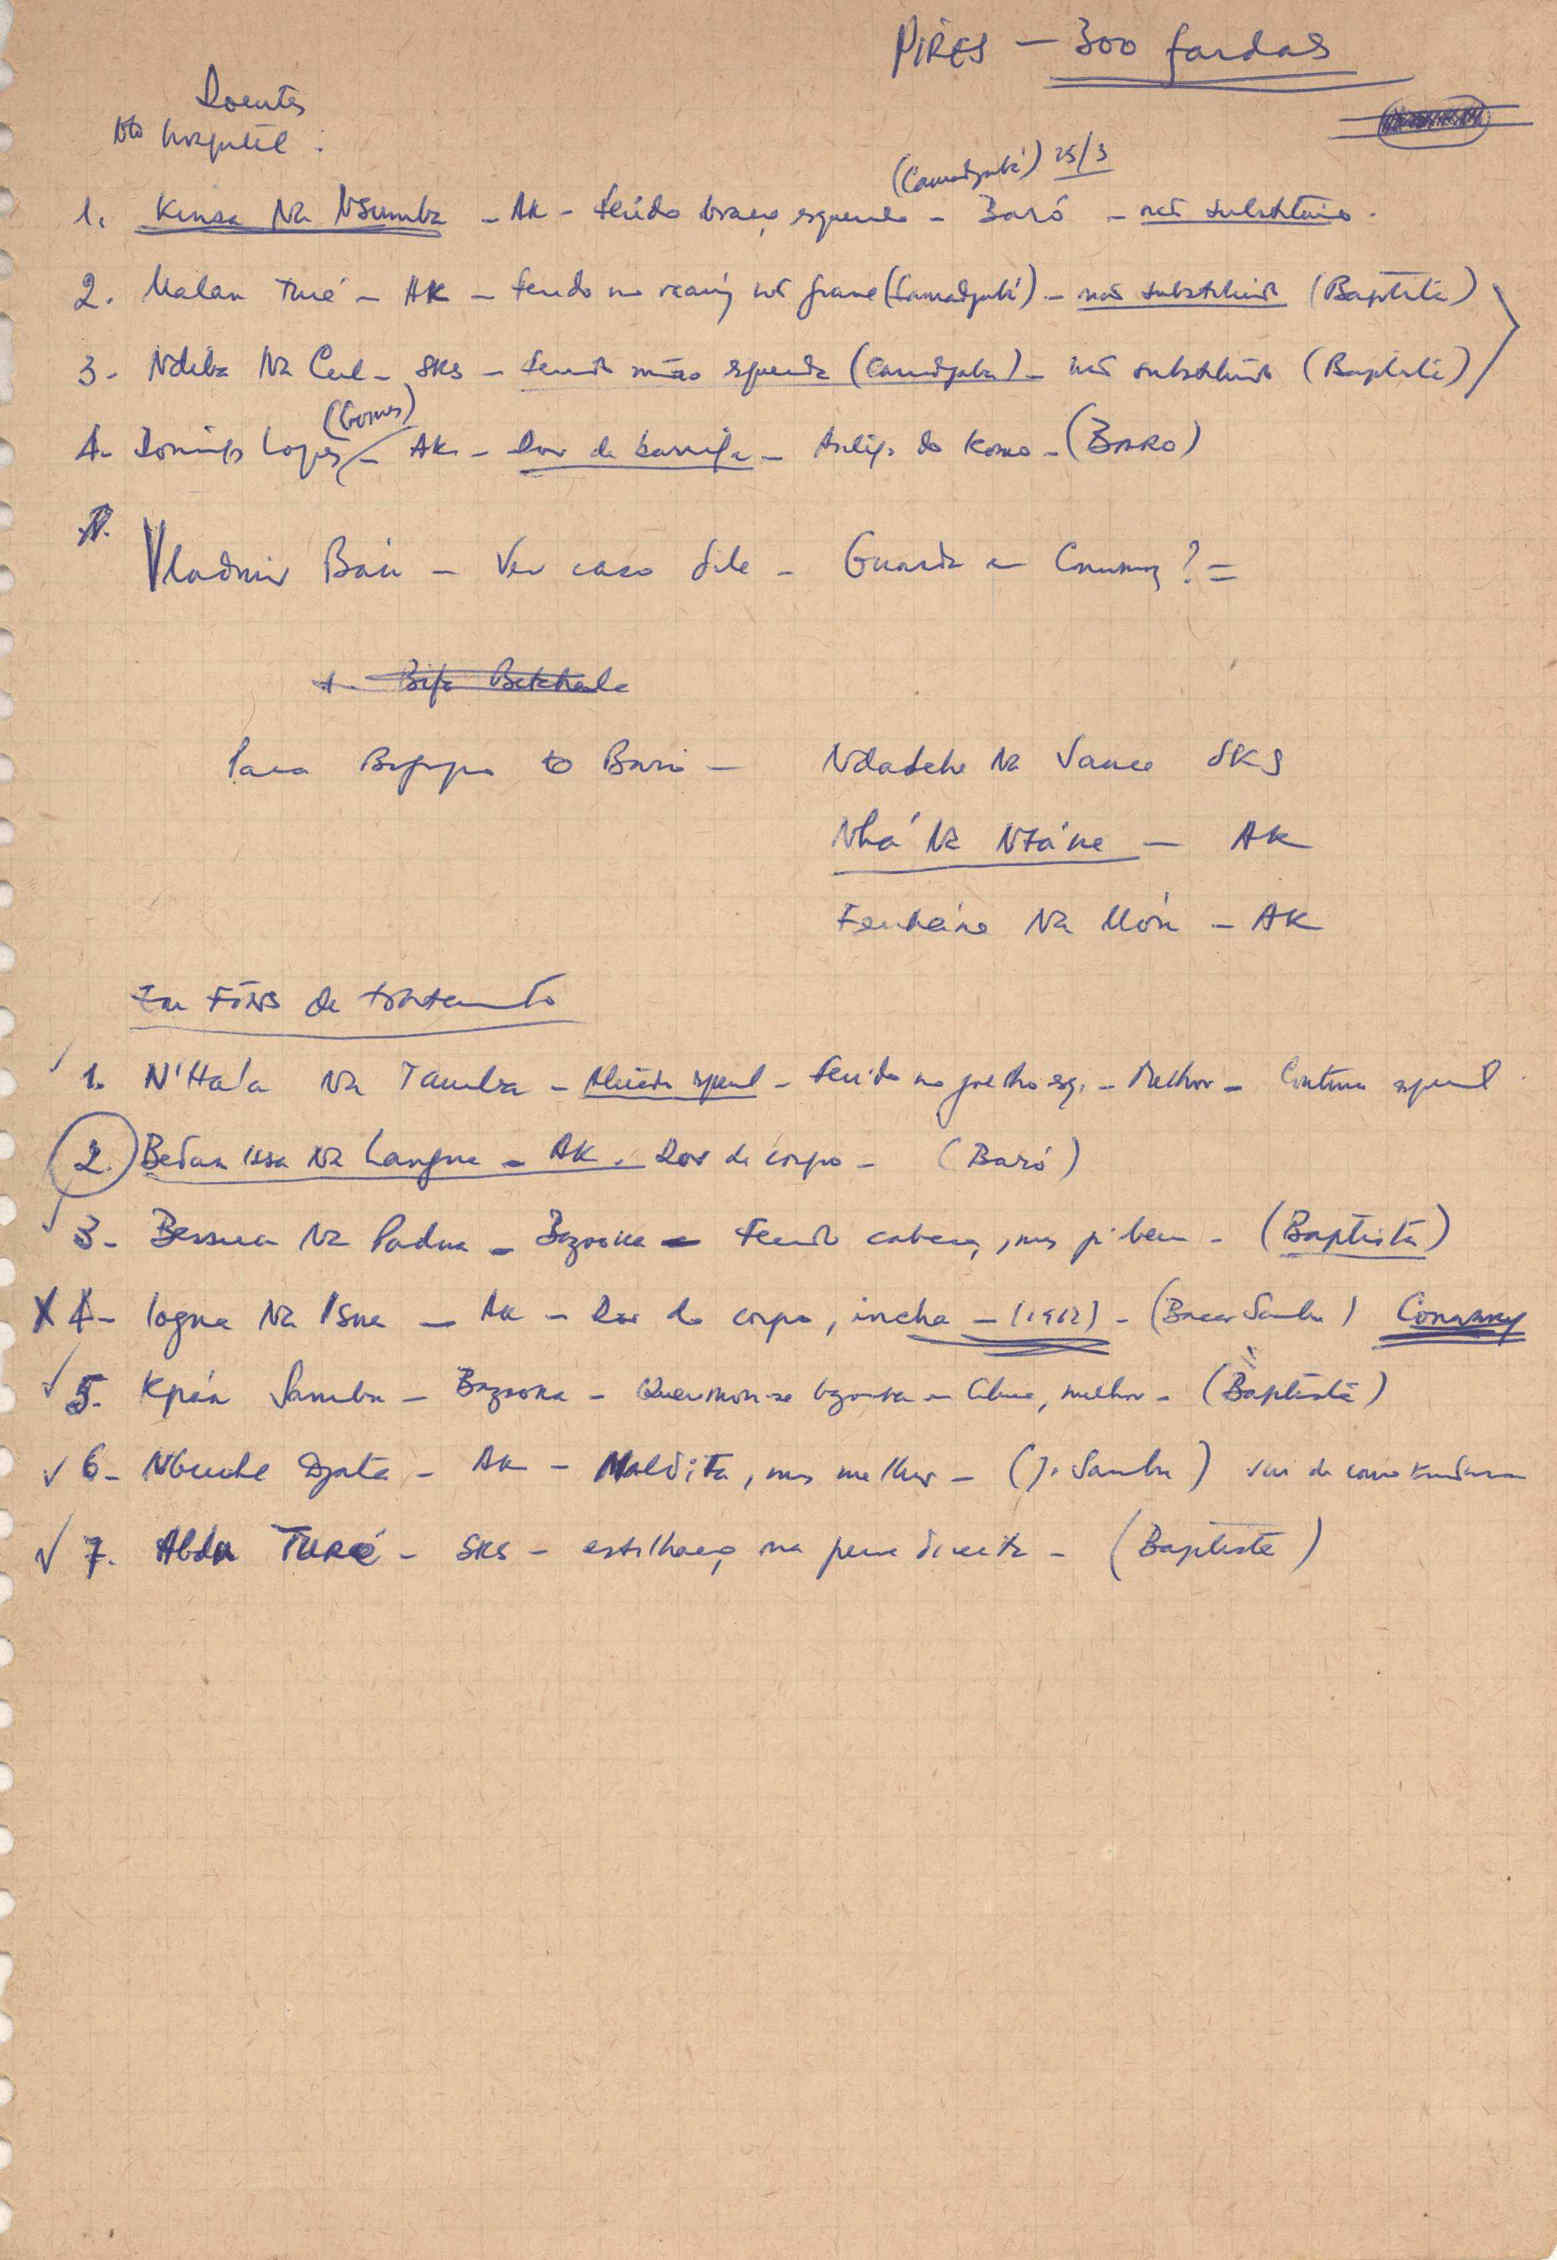 PIRES — 300 fardas
Doentes
No hospital :
(Camadjabá) 25/3
1. Kinsa Na Nsumba - AK - ferido braço esquerdo - Baró - não substituído.
2. Malan Turé - AK - ferido no não grave (Camadjabá) - não substituído (Baptista)
3. Ndiba Na Cul - SKS - ferido mão esquerda (Camadjabá) - não substituído (Baptista)
(Gomes)
4. Domingos Lopes - AK - Dor de barriga - Antigo do Komo - (BARO)
Vladimir - Ver caso dele - Guarda em Conakry ? =
Para -
Na SKS
Nhá Na Ntáne — AK
Na Món - AK
Em fins de tratamento
1. N'Hala Na Tamba - - ferido no joelho esq. - Melhor - Continua
2. Na Langna - AK. Dor de corpo - (Baró)
3- Bessua Na Padna - Bazooka - Ferido cabeça, mas já bem - (Baptista)
4- Iogna Na Isna - AK - Dor de corpo, incha - (1962) - (Bacar Sambu) Conakry
5. Kpán Sambu - Bazooka - Queimou-se bazooka - , melhor - (Baptista)
6- Djata - AK - Maldita, mas melhor - (J. Sambu)
7. Abdu TURÉ - SKS - estilhaço na perna direita - (Baptista)